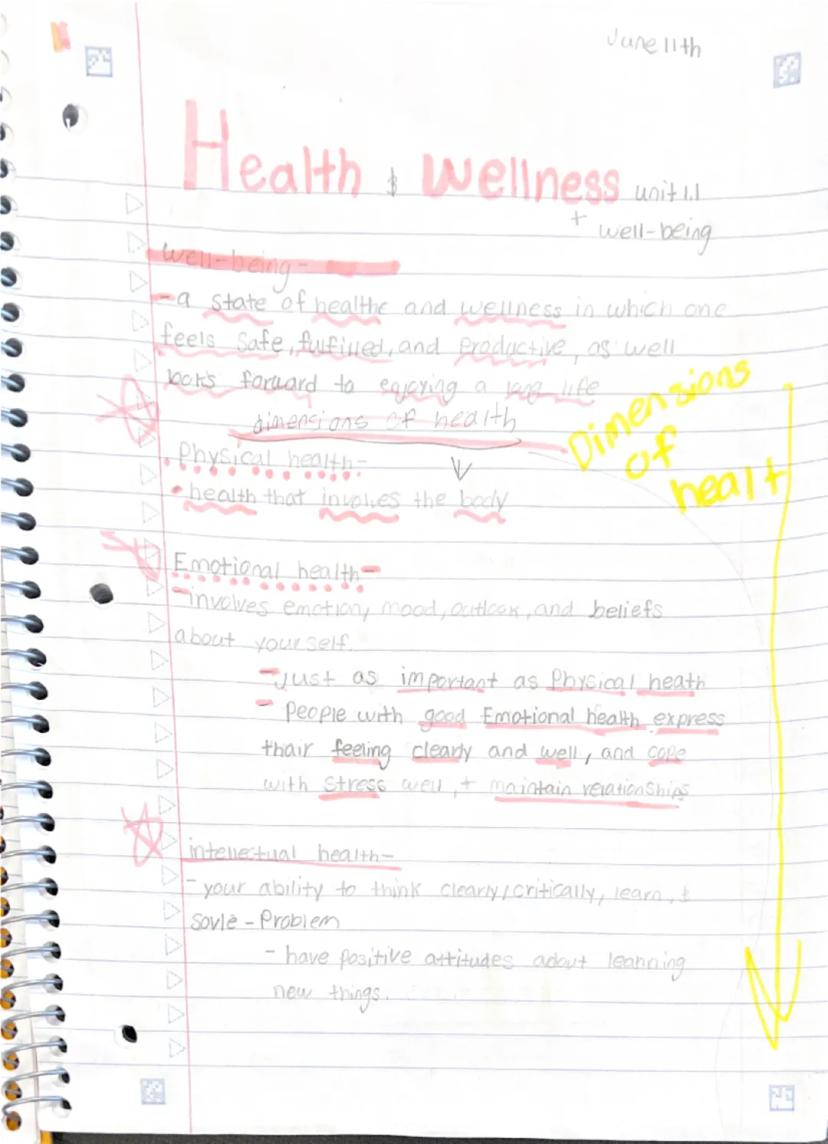 June 11th
Health & Wellness unit 1.1
+ well-being
Well-being-
-a state of healthe and wellness in which one
feels safe, fulfilled, and productive, as well
looks forward to enjoying a long life
dimensions of health
Dimensions
of
healt
Physical health-
• health that involves the body
Emotional health-
-involves emotion, mood, outlook, and beliefs
about yourself.
-Just as important as Physical heath
- People with good Emotional health express
thair feeling clearly and well, and cope
with stress well, + maintain relationships
intellectual health-
- your ability to think clearly/critically, learn, &
sovle - Problem
- have positive attitudes adout leanning
new things.